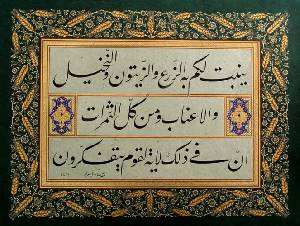 ينبت لكم به الزرع والزيتون والنخيل
والاعناب ومن كل الثمرات
ان في ذلك لاية لقوم يتفكرون